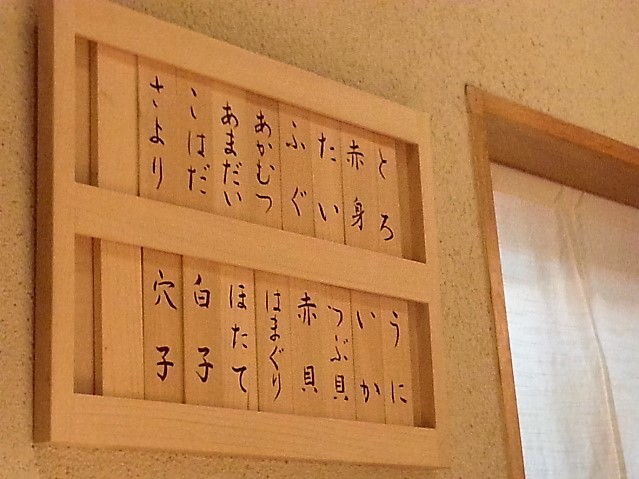 とろ
赤身
たい
ふぐ
あかむつ
あまだい
こはだ
さより
うに
いか
つぶ貝
赤貝
はまぐり
ほたて
白子
穴子